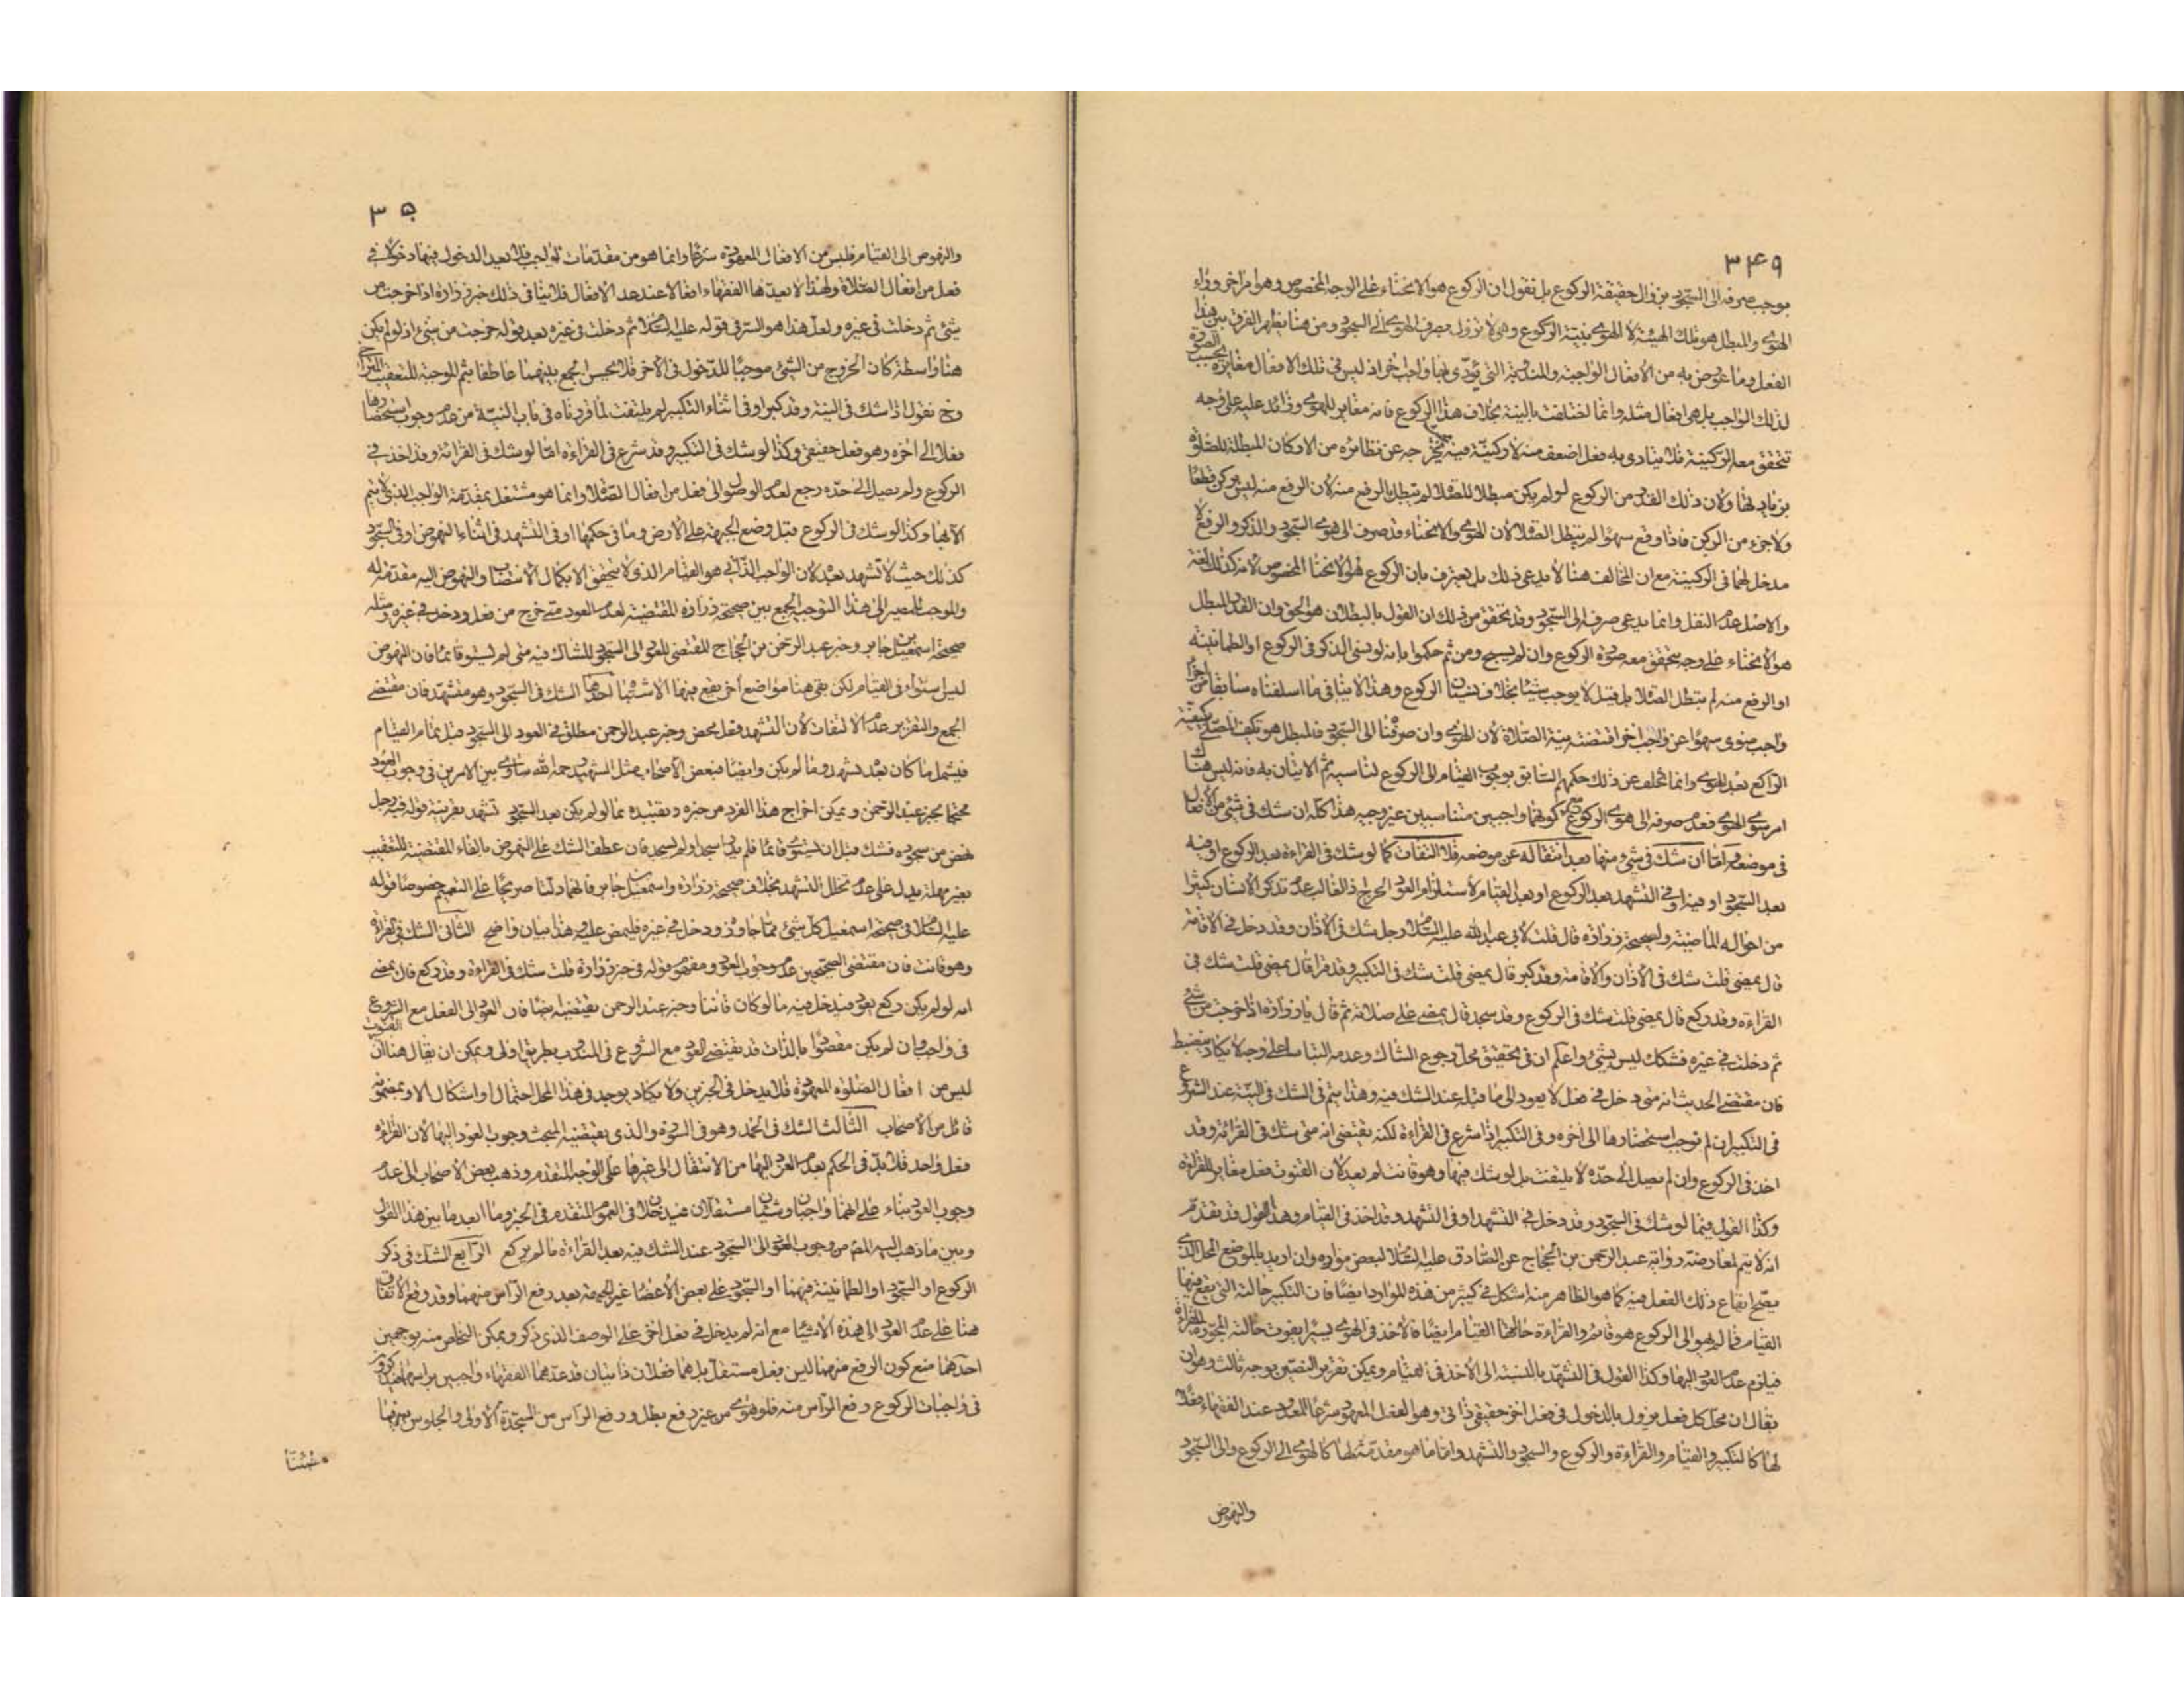 ٣٤٩
بموجب صرفه الى السجود يزول حقيقة الركوع بل نقول ان الركوع هو الانحناء على الوجه المخصوص وهو امر اخر وراء
الهوى والمبطل هو تلك الهيئة لا الهوى بنية الركوع وهى لا تزول بصرف الهوى الى السجود ومن هنا يظهر الفرق بين هذا
الفعل وما عوض به من الافعال الواجبة والمندوبة التى يؤدى بها واجب اخر اذ ليس فى تلك الافعال مغايرة بحسب الصورة
لذلك الواجب بل هى افعال مثله وانما اختلفت بالنية بخلاف هذا الركوع فانه مغاير للهوى وزائد عليه على وجه
تتحقق معه الركنية فلا يتادى به فعل اضعف منه لا ركنية فيه لخروجه عن نظائره من الاركان المبطلة للصلوة
بزيادتها ولان ذلك القدر من الركوع لو لم يكن مبطلا للصلاة لم تبطل بالرفع منه لان الرفع منه ليس بركن قطعا
ولا جزء من الركن فاذا وقع سهوا لم يبطل الصلاة لان الهوى والانحناء قد صرف الى هوى السجود والذكر والرفع لا
مدخل لهما فى الركنية مع ان المخالف هنا لا يدعى ذلك بل يعترف بان الركوع هو الانحناء المخصوص لانه كذلك لغة
والاصل عدم النقل وانما يدعى صرفه الى السجود وقد تحقق من ذلك ان القول بالبطلان هو الحق وان القدر المبطل
هو الانحناء على وجه يتحقق معه صورة الركوع وان لم يسبح ومن ثم حكموا بانه لو نسى الذكر فى الركوع او الطمانينة
او الرفع منه لم تبطل الصلاة بل قيل لا يوجب شيئا بخلاف نسيان الركوع وهذا لا ينافى ما اسلفناه سابقا من اجزاء
واجب منوى سهوا عن واجب اخر اقتضته نية الصلاة لان الهوى وان صرفنا الى السجود فالمبطل هو تكيف المصلى بكيفية
الراكع بعد الهوى وانما تخلف عن ذلك حكمهم السابق بوجوب القيام الى الركوع لناسيه ثم الاتيان به فانه ليس هناك
امر سوى الهوى فعدم صرفه الى هوى الركوع مع كونهما واجبين متناسبين غير وجيه هذا كله ان شك فى شئ من الافعال
فى موضعه اما ان شك فى شئ منها بعد انتقاله عن موضعه فلا التفات كما لو شك فى القراءة بعد الركوع او فيه
بعد السجود او فيه او فى التشهد بعد الركوع او بعد القيام لاستلزام العود الحرج اذ الغالب عدم تذكر الانسان كثيرا
من احواله الماضية ولصحيحة زرارة قال قلت لابى عبد الله عليه السلام رجل شك فى الاذان وقد دخل فى الاقامة
قال يمضى قلت شك فى الاذان والاقامة وقد كبر قال يمضى قلت شك فى التكبير وقد قرا قال يمضى قلت شك فى
القراءة وقد ركع قال يمضى قلت شك فى الركوع وقد سجد قال يمضى على صلاته ثم قال يا زرارة اذا خرجت من شئ
ثم دخلت فى غيره فشكك ليس بشئ واعلم ان فى تحقيق محل رجوع الشاك وعدمه التباسا على وجه لا يكاد ينضبط
فان مقتضى الحديث انه متى دخل فى فعل لا يعود الى ما قبله عند الشك فيه وهذا يتم فى الشك فى النية عند الشروع
فى التكبير ان لم نوجب استحضارها الى اخره وفى التكبير اذا شرع فى القراءة لكنه يقتضى انه متى شك فى القرائة وقد
اخذ فى الركوع وان لم يصل الى حده لا يلتفت بل لو شك فيها وهو قانت لم يعد لان القنوت فعل مغاير للقراءة
وكذا القول فيما لو شك فى السجود وقد دخل فى التشهد او فى التشهد وقد اخذ فى القيام وهذا القول قد تقدم
انه لا يتم لمعارضة رواية عبد الرحمن بن الحجاج عن الصادق عليه السلام لبعض موارده وان اريد بالموضع المحل الذى
يصح ايقاع ذلك الفعل فيه كما هو الظاهر منه اشكل فى كثير من هذه الموارد ايضا فان التكبير حالته التى يقع فيها
القيام فما لم يهو الى الركوع هو قائم والقراءة حالها القيام ايضا فالاخذ فى الهوى يسيرا يفوت حالته المجوزة للقراءة
فيلزم عدم العود اليها وكذا القول فى التشهد بالنسبة الى الاخذ فى القيام ويمكن تقرير النصين بوجه ثالث وهو ان
يقال ان محل كل فعل يزول بالدخول فى فعل اخر حقيقى ذاتى وهو الفعل المعهود شرعا المعدود عند الفقهاء فعلا
لها كالتكبير والقيام والقراءة والركوع والسجود والتشهد واما ما هو مقدمة لها كالهوى الى الركوع والى السجود
والنهوض
٣٥٠
والنهوض الى القيام فليس من الافعال المعهودة شرعا وانما هو من مقدمات الواجب فلا يعد الدخول فيها دخولا فى
فعل من افعال الصلاة ولهذا لا يعدها الفقهاء افعالا عند عد الافعال فلا ينافى ذلك خبر زرارة اذا خرجت من
شئ ثم دخلت فى غيره ولعل هذا هو السر فى قوله عليه السلام ثم دخلت فى غيره بعد قوله خرجت من شئ اذ لو لم يكن
هنا واسطة كان الخروج من الشئ موجبا للدخول فى الاخر فلا يحسن الجمع بينهما عاطفا بثم الموجبة للتعقيب المتراخى
وح نقول اذا شك فى النية وقد كبر او فى اثناء التكبير لم يلتفت لما قررناه فى باب النية من عدم وجوب استحضارها
فعلا الى اخره وهو فعل حقيقى وكذا لو شك فى التكبير وقد شرع فى القراءة اما لو شك فى القرائة وقد اخذ فى
الركوع ولم يصل الى حده رجع لعدم الوصول الى فعل من افعال الصلاة وانما هو مشتغل بمقدمة الواجب الذى لا يتم
الا بها وكذا لو شك فى الركوع قبل وضع الجبهة على الارض وما فى حكمها او فى التشهد فى اثناء النهوض او فى السجود
كذلك حيث لا تشهد بعد لان الواجب الذاتى هو القيام الذى لا يتحقق الا بكمال الانتصاب والنهوض اليه مقدمة له
والموجب للمصير الى هذا التوجيه الجمع بين صحيحة زرارة المقتضية لعدم العود متى خرج من فعل ودخل فى غيره ومثله
صحيحة اسمعيل بن جابر وخبر عبد الرحمن بن الحجاج المقتضى للعود الى السجود للشاك فيه متى لم يستو قائما فان النهوض
ليس استواء فى القيام لكن بقى هنا مواضع اخر يقع فيها الاشتباه احدها الشك فى السجود وهو متشهد فان مقتضى
الجمع والتقرير عدم الالتفات لان التشهد فعل محض وخبر عبد الرحمن مطلق فى العود الى السجود قبل تمام القيام
فيشمل ما كان بعد تشهد وما لم يكن وايضا فبعض الاصحاب مثل الشهيد رحمه الله ساوى بين الامرين فى وجوب العود
محتجا بخبر عبد الرحمن ويمكن اخراج هذا الفرد من خبره وتقييده بما لو لم يكن بعد السجود تشهد بقرينة قوله فيه رجل
نهض من سجوده فشك قبل ان يستوى قائما فلم يدر اسجد او لم يسجد فان عطف الشك على النهوض بالفاء المقتضية للتعقيب
بغير مهلة يدل على عدم تخلل التشهد بخلاف صحيحة زرارة واسمعيل بن جابر فانهما دلتا صريحا على التعميم خصوصا قوله
عليه السلام فى صحيحة اسمعيل كل شئ مما جاوزه ودخل فى غيره فليمض عليه وهذا بيان واضح الثانى الشك فى القراءة
وهو قانت فان مقتضى الصحيحين عدم وجوب العود ومفهوم قوله فى خبر زرارة قلت شك فى القراءة وقد ركع قال يمضى
انه لو لم يكن ركع يعود فيدخل فيه ما لو كان قانتا وخبر عبد الرحمن يقتضيه ايضا فان العود الى الفعل مع الشروع
فى واجب وان لم يكن مقصودا بالذات قد يقتضى العود مع الشروع فى المندوب بطريق اولى ويمكن ان يقال هنا ان القنوت
ليس من افعال الصلوة المعهودة فلا يدخل فى الخبرين ولا يكاد يوجد فى هذا المحل احتمال او اشكال الا وبمضمونه
قائل من الاصحاب الثالث الشك فى الحمد وهو فى السورة والذى يقتضيه المبحث وجوب العود اليها لان القراءة
فعل واحد فلا بد فى الحكم بعدم العود اليها من الانتقال الى غيرها على الوجه المتقدم وذهب بعض الاصحاب الى عدم
وجوب العود بناء على انهما واجبان وشيئان مستقلان فيدخلان فى العموم المتقدم فى الخبر وما ابعد ما بين هذا القول
وبين ما ذهب اليه المص من وجوب العود الى السجود عند الشك فيه بعد القراءة ما لم يركع الرابع الشك فى ذكر
الركوع او السجود او الطمانينة فيهما او السجود على بعض الاعضاء غير الجبهة بعد رفع الراس منهما وقد وقع الاتفاق
هنا على عدم العود الى هذه الاشياء مع انه لم يدخل فى فعل اخر على الوصف الذى ذكر ويمكن التخلص منه بوجهين
احدهما منع كون الرفع منهما ليس بفعل مستقل بل هما فعلان ذاتيان قد عدهما الفقهاء واجبين براسهما فيذكرون
فى واجبات الركوع رفع الراس منه فلو هوى من غير رفع بطل ورفع الراس من السجدة الاولى والجلوس بعدها